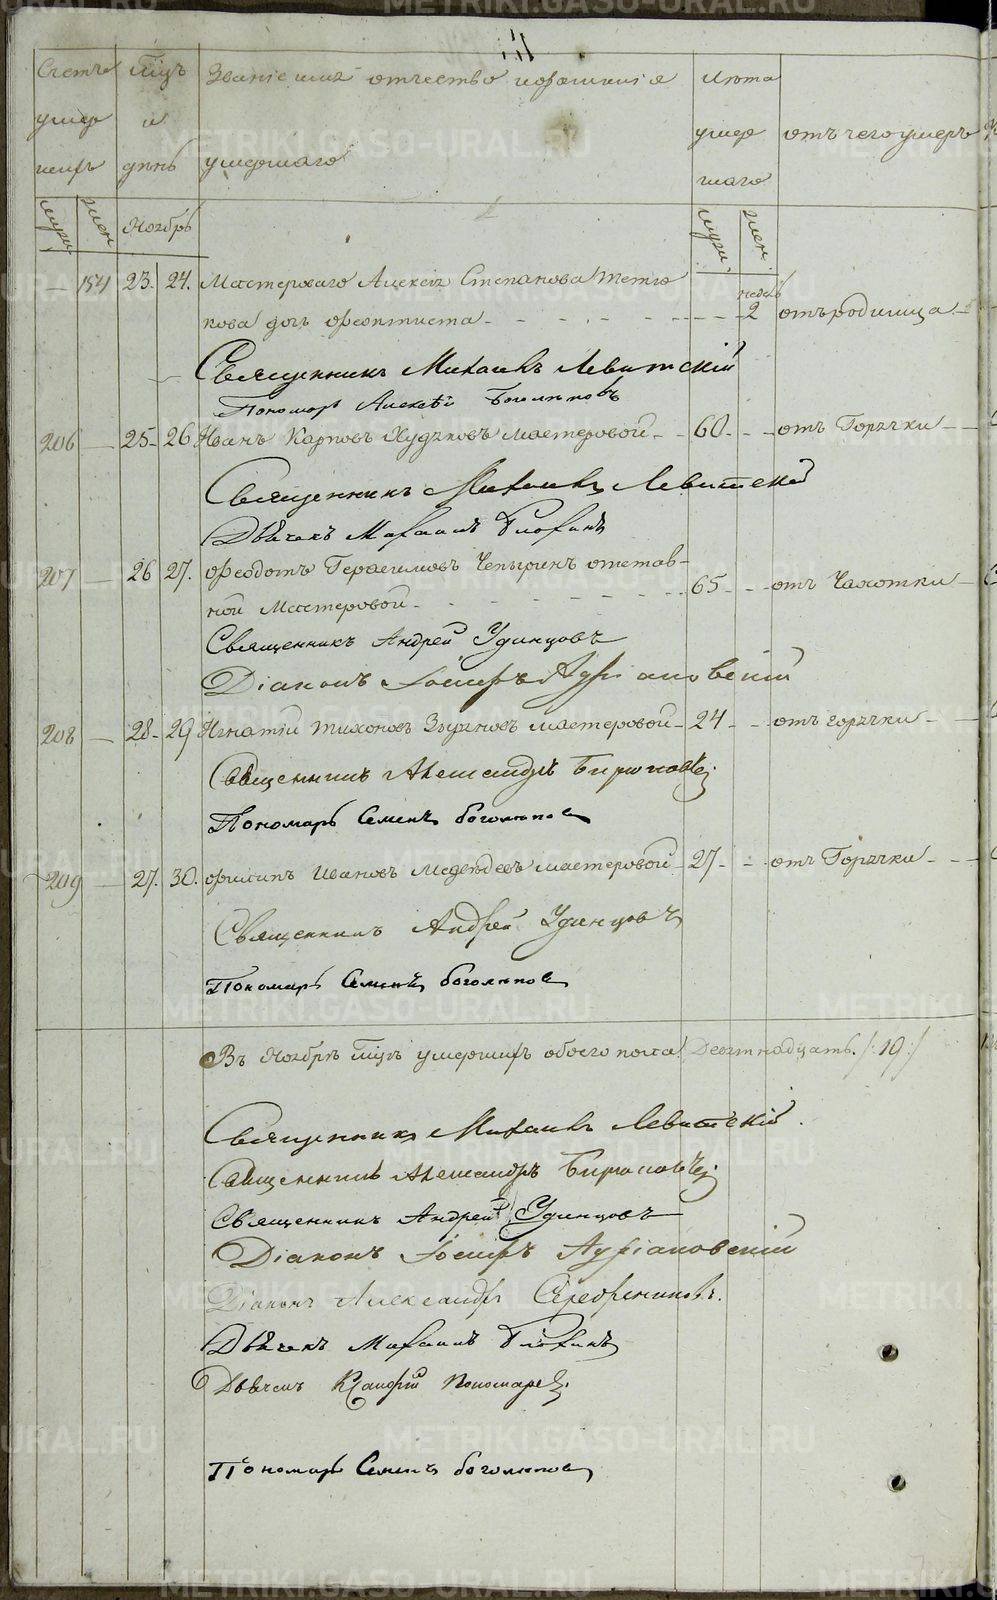 Счетъ
умер
шихъ
Мцъ
и
день
Званіе имя отчество и фамилія
умершаго
Лѣта
умер
шаго
отъ чего умеръ
муж.
жен.
Ноябрь
муж.
жен.
— 154 23. 24. Мастероваго Алексѣя Степанова Тетю
кова дочь Феоктиста недель 2 отъ родимца
Священникъ Михаилъ Левитскій
Пономарь Алексѣй Боголюповъ
206 — 25 26 Иванъ Карповъ Худяковъ мастеровой 60 отъ Горячки
Священникъ Михаилъ Левитскій
Дьячекъ Мафаилъ
207 — 26 27. Феодотъ Герасимовъ Чепыринъ отстав-
ной Мастеровой 65 отъ Чахотки
Священникъ Андрей Удинцовъ
Діаконъ Іосифъ
208 — 28 29 Игнатій Тихоновъ Зыряновъ мастеровой 24 отъ горячки
Священникъ Александръ Бирюковъ
Пономарь Семенъ Боголюпов
209 — 27. 30. Филипъ Ивановъ Медвѣдевъ мастеровой 27 отъ Горячки
Священникъ Андрей Удинцовъ
Пономарь Семенъ Боголюпов
Въ Ноябрѣ Мцѣ умершихъ обоего пола Девятнадцать. /:19:/
Священникъ Михаилъ Левитскій
Священникъ Александръ Бирюковъ
Священникъ Андрей Удинцовъ
Діаконъ Іосифъ
Діаконъ Александръ Серебрениковъ.
Дьячекъ Мафаилъ
Дьячекъ Пономарев
Пономарь Семенъ Боголюпов
METRIKI.GASO-URAL.RU